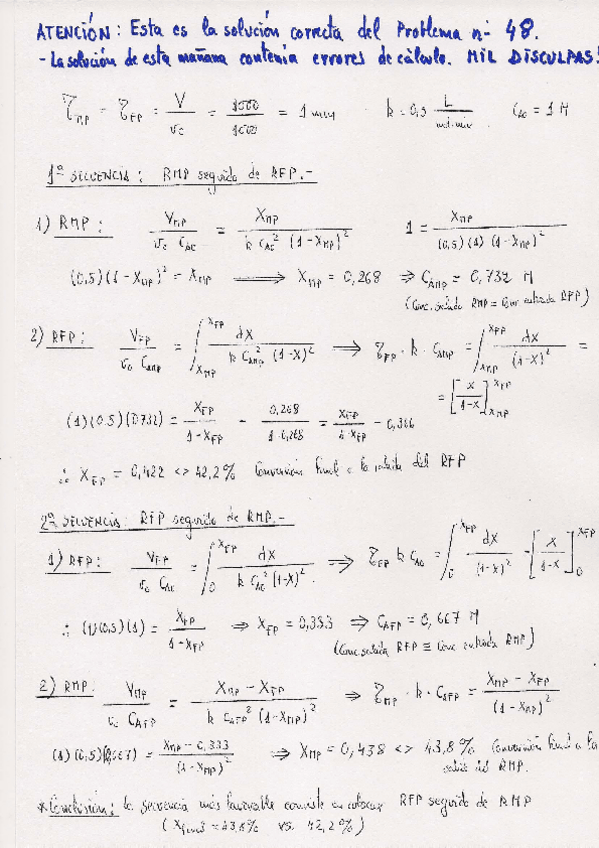 ATENCIÓN: Esta es la solución correcta del Problema nº 48.
- La solución de esta mañana contenía errores de cálculo. MIL DISCULPAS!
τ_MP = τ_FP = V/v₀ = 1000/1000 = 1 min k = 0,5 L/mol·min C_A0 = 1 M
1ª SECUENCIA: RMP seguido de RFP.-
1) RMP: V_MP/(v₀ C_A0) = X_MP/(k C_A0² (1-X_MP)²) 1 = X_MP/((0,5)(1)(1-X_MP)²)
(0,5)(1-X_MP)² = X_MP ⟹ X_MP = 0,268 ⇒ C_AMP = 0,732 M
(Conc. salida RMP = Conc entrada RFP)
2) RFP: V_FP/(v₀ C_AMP) = ∫_{X_MP}^{X_FP} dX/(k C_AMP² (1-X)²) ⟹ τ_FP · k · C_AMP = ∫_{X_MP}^{X_FP} dX/(1-X)² =
= [X/(1-X)]_{X_MP}^{X_FP}
(1)(0.5)(0732) = X_FP/(1-X_FP) - 0,268/(1-0,268) = X_FP/(1-X_FP) - 0,366
∴ X_FP = 0,422 <> 42,2% Conversión final a la salida del RFP
2ª SECUENCIA: RFP seguido de RMP.-
1) RFP: V_FP/(v₀ C_A0) = ∫_0^{X_FP} dX/(k C_A0² (1-X)²) ⟹ τ_FP k C_A0 = ∫_0^{X_FP} dX/(1-X)² = [X/(1-X)]_0^{X_FP}
∴ (1)(0,5)(1) = X_FP/(1-X_FP) ⇒ X_FP = 0,333 ⇒ C_AFP = 0,667 M
(Conc. salida RFP ≡ Conc entrada RMP)
2) RMP: V_MP/(v₀ C_AFP) = (X_MP - X_FP)/(k C_AFP² (1-X_MP)²) ⟹ τ_MP · k · C_AFP = (X_MP - X_FP)/(1-X_MP)²
(1)(0,5)(0,667) = (X_MP - 0,333)/(1-X_MP)² ⇒ X_MP = 0,438 <> 43,8% Conversión final a la
salida del RMP.
* Conclusión: la secuencia más favorable consiste en colocar RFP seguido de RMP
(X_final = 43,8% vs. 42,2%)